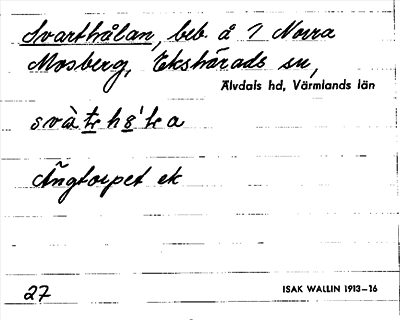 Svarthålan, beb. å 7 Norra
Mosberg, Ekshärads sn,
Älvdals hd, Värmlands län
Ängtorpet ek
27
ISAK WALLIN 1913–16